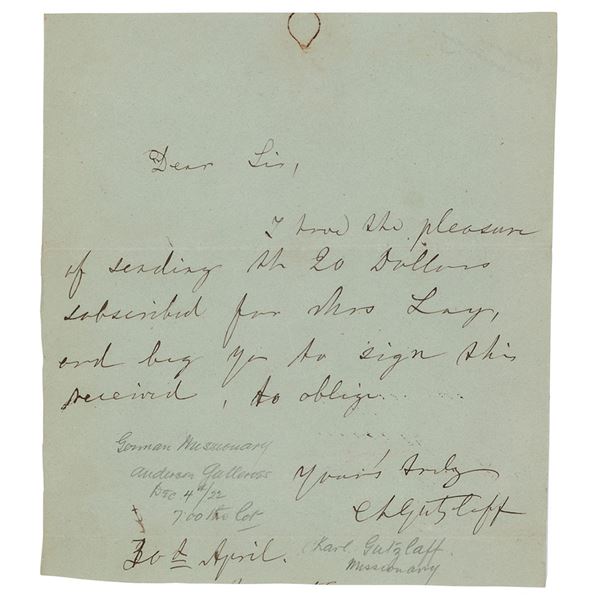 Dear Sir,
I have the pleasure
of sending th 20 Dollars
subscribed for Mrs Lay,
and beg you to sign this
received, to oblige
Yours truly
German Missionary
Anderson Galleries
Dec 4th/22
7.00 the lot
ChGutzlaff
30th April.
Karl Gutzlaff.
Missionary